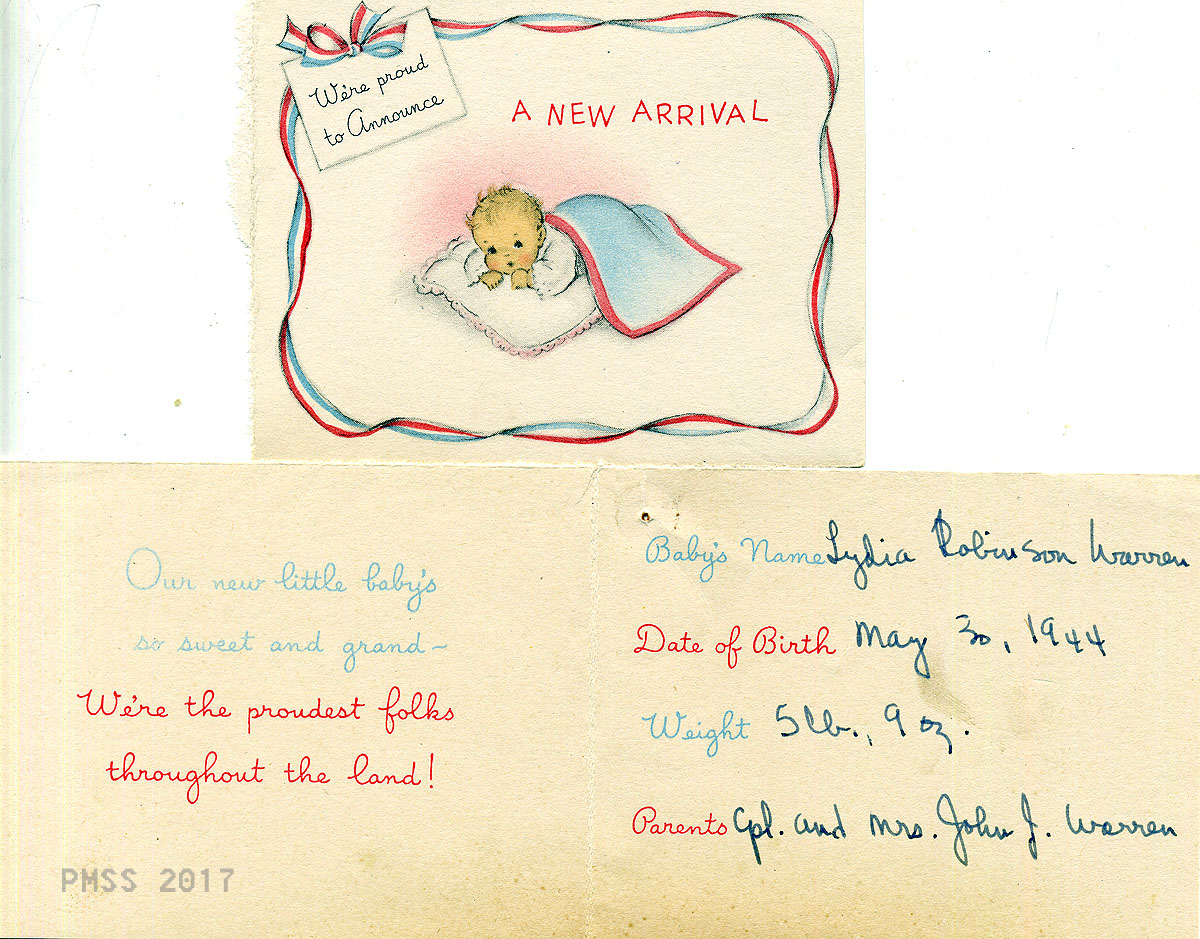 We're proud
to Announce
A NEW ARRIVAL
Our new little baby's
so sweet and grand~
We're the proudest folks
throughout the land!
Baby's Name Lydia Robinson Warren
Date of Birth May 30, 1944
Weight 5 lb., 9 oz.
Parents Cpl. and Mrs. John J. Warren
PMSS 2017